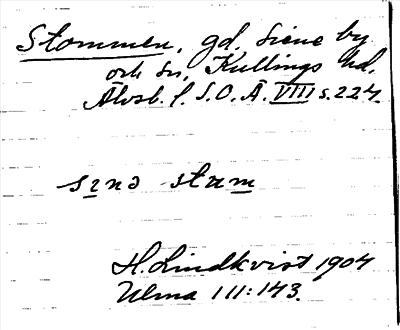 Stommen, gd, Siene by
och sn, Kullings hd,
Älvsb. l. S.O.Ä. VIII s. 224.
sɪnə stum
H. Lindkvist 1904
Ulma 111:143.